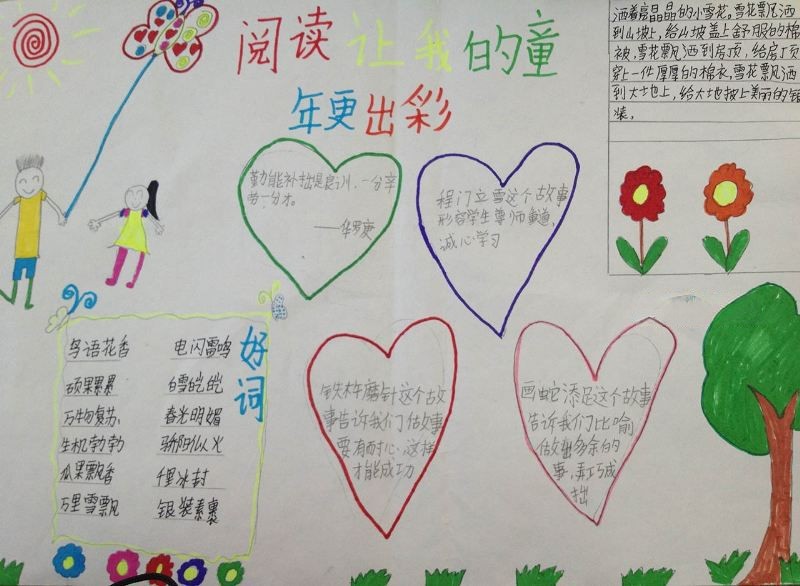 阅读让我的童
年更出彩
洒着亮晶晶的小雪花。雪花飘洒
到山坡上,给山坡盖上舒服的棉
被,雪花飘洒到房顶,给房顶
穿上一件厚厚的棉衣,雪花飘洒
到大地上,给大地披上美丽的银
装。
勤能补拙是良训,一分辛
劳一分才。
——华罗庚
程门立雪这个故事
形容学生尊师重道,
诚心学习
好词
鸟语花香 电闪雷鸣
硕果累累 白雪皑皑
万物复苏 春光明媚
生机勃勃 骄阳似火
瓜果飘香 千里冰封
万里雪飘 银装素裹
铁杵磨针这个故
事告诉我们做事
要有耐心,这样
才能成功
画蛇添足这个故事
告诉我们比喻
做出多余的
事,弄巧成
拙